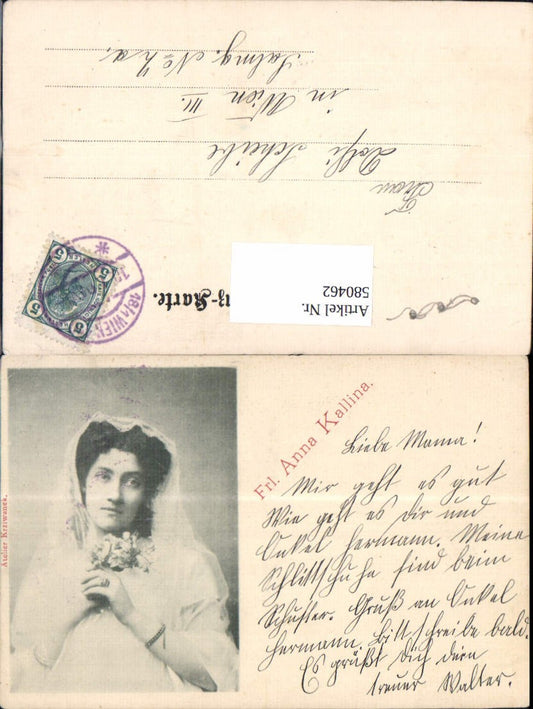 Frau
Dolfi Scheibe
in Wien III.
Salmg. No
Artikel Nr.
580462
-Karte.
5 5
5 5
18/1 WIEN
Atelier Krziwanek.
Frl. Anna Kallina.
Liebe Mama!
Mir geht es gut
Wie geht es Dir und
Onkel Hermann. Meine
Schlittschuhe sind beim
Schuster. Gruß an Onkel
Hermann. Bitt schreibe bald.
Es grüßt Dich dein
treuer Walter.